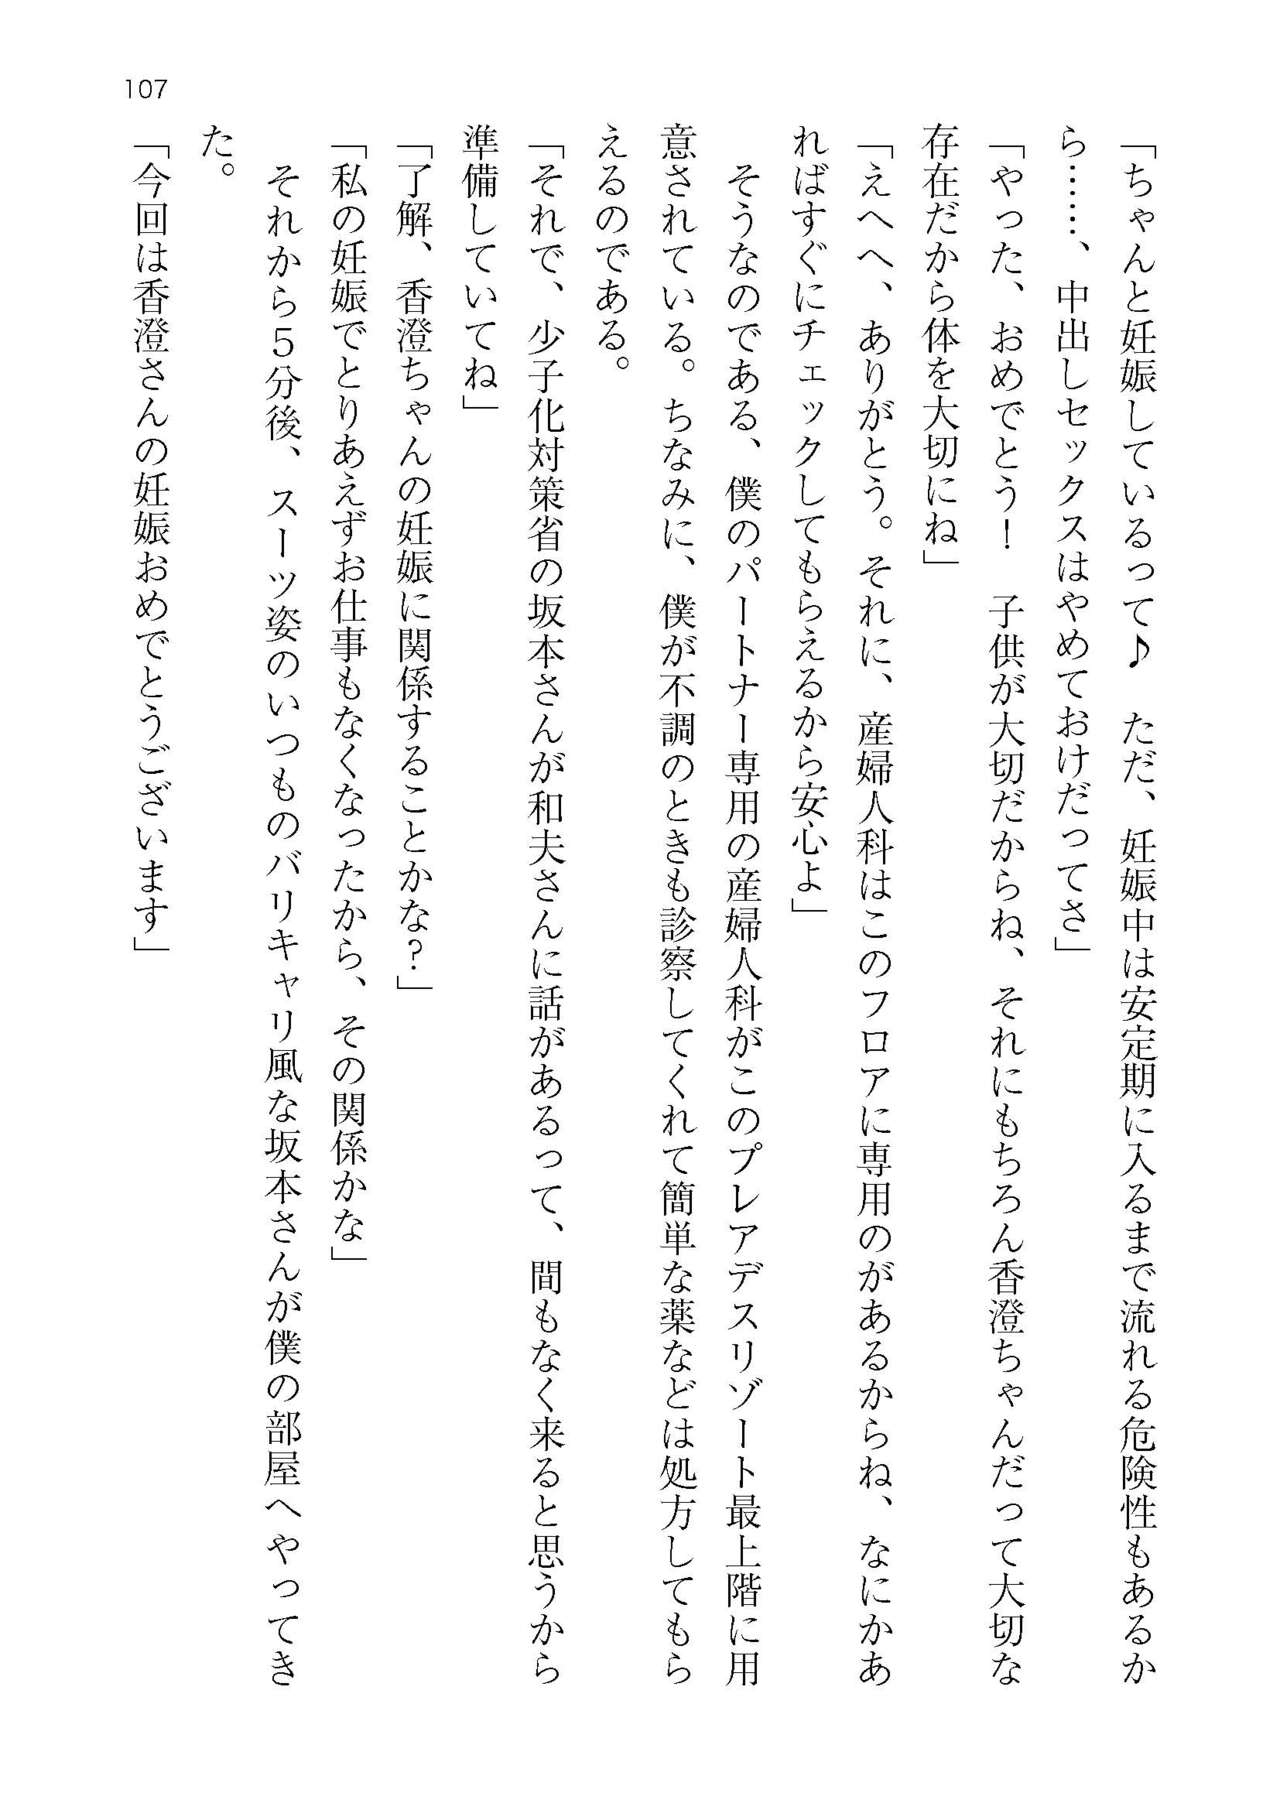 107
「ちゃんと妊娠しているって♪　ただ、妊娠中は安定期に入るまで流れる危険性もあるか
ら……、中出しセックスはやめておけだってさ」
「やった、おめでとう！　子供が大切だからね、それにもちろん香澄ちゃんだって大切な
存在だから体を大切にね」
「えへへ、ありがとう。それに、産婦人科はこのフロアに専用のがあるからね、なにかあ
ればすぐにチェックしてもらえるから安心よ」
　そうなのである、僕のパートナー専用の産婦人科がこのプレアデスリゾート最上階に用
意されている。ちなみに、僕が不調のときも診察してくれて簡単な薬などは処方してもら
えるのである。
「それで、少子化対策省の坂本さんが和夫さんに話があるって、間もなく来ると思うから
準備していてね」
「了解、香澄ちゃんの妊娠に関係することかな？」
「私の妊娠でとりあえずお仕事もなくなったから、その関係かな」
　それから５分後、スーツ姿のいつものバリキャリ風な坂本さんが僕の部屋へやってき
た。
「今回は香澄さんの妊娠おめでとうございます」